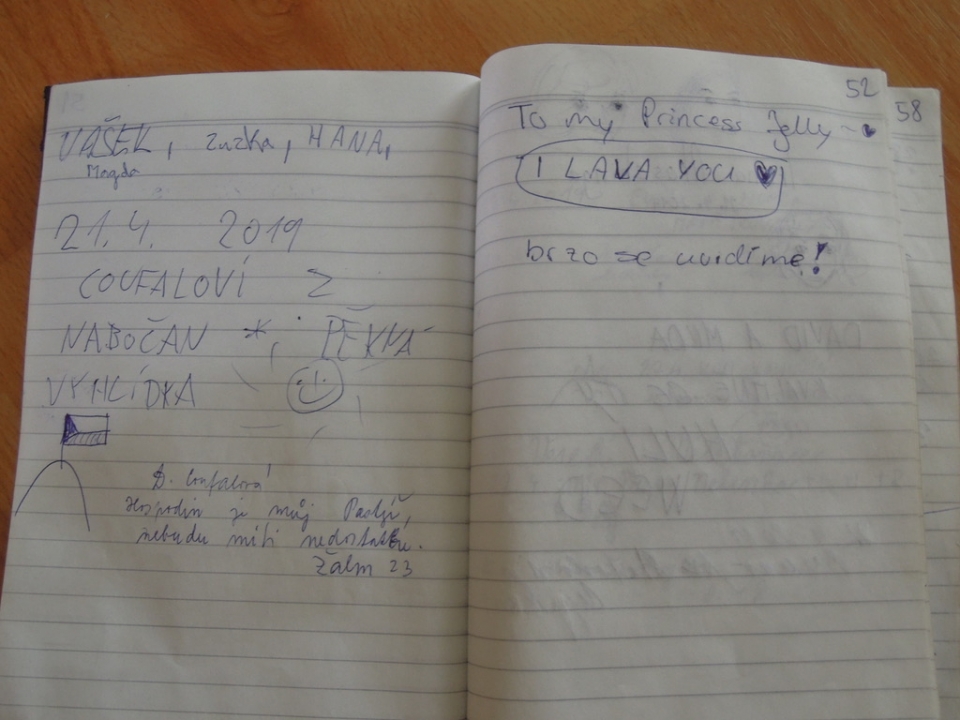 VAŠEK, Zuzka, HANA,
Magda
21.4. 2019
COUFALOVÍ Z
NABOČAN *, PĚKNÁ
VYHLÍDKA
D. Coufalová
Hospodin je můj Pastýř,
nebudu míti nedostatku.
Žalm 23
52
To my Princess Jelly
I LAVA YOU
brzo se uvidíme!
58